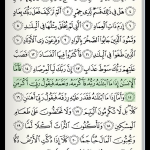 هَلْ فِي ذَٰلِكَ قَسَمٌ لِّذِي حِجْرٍ ٥ أَلَمْ تَرَ كَيْفَ فَعَلَ رَبُّكَ بِعَادٍ ٦
إِرَمَ ذَاتِ الْعِمَادِ ٧ الَّتِي لَمْ يُخْلَقْ مِثْلُهَا فِي الْبِلَادِ ٨
وَثَمُودَ الَّذِينَ جَابُوا الصَّخْرَ بِالْوَادِ ٩ وَفِرْعَوْنَ ذِي الْأَوْتَادِ ١٠
الَّذِينَ طَغَوْا فِي الْبِلَادِ ١١ فَأَكْثَرُوا فِيهَا الْفَسَادَ ١٢ فَصَبَّ
عَلَيْهِمْ رَبُّكَ سَوْطَ عَذَابٍ ١٣ إِنَّ رَبَّكَ لَبِالْمِرْصَادِ ١٤ فَأَمَّا
الْإِنسَانُ إِذَا مَا ابْتَلَاهُ رَبُّهُ فَأَكْرَمَهُ وَنَعَّمَهُ فَيَقُولُ رَبِّي أَكْرَمَنِ
١٥ وَأَمَّا إِذَا مَا ابْتَلَاهُ فَقَدَرَ عَلَيْهِ رِزْقَهُ فَيَقُولُ رَبِّي أَهَانَنِ
١٦ كَلَّا بَل لَّا تُكْرِمُونَ الْيَتِيمَ ١٧ وَلَا تَحَاضُّونَ عَلَىٰ طَعَامِ
الْمِسْكِينِ ١٨ وَتَأْكُلُونَ التُّرَاثَ أَكْلًا لَّمًّا